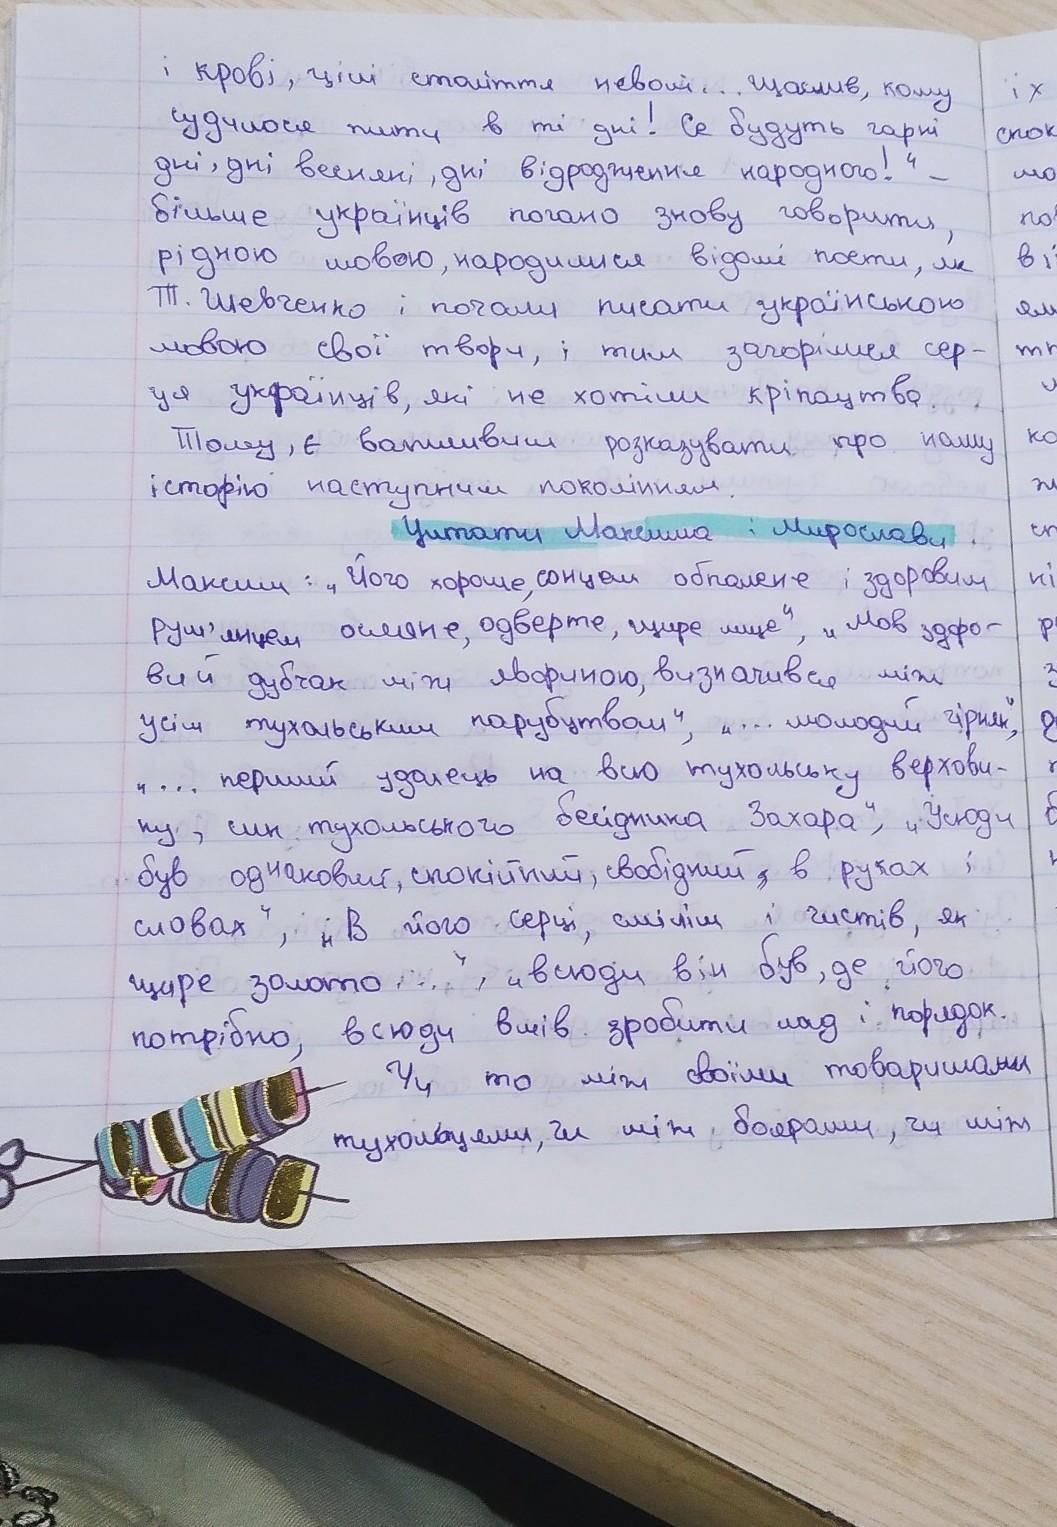 і крові, цілі століття неволі... Щаслив, кому
судилося жити в ті дні! Се будуть гарні
дні, дні весняні, дні відродження народного!" –
більше українців почано знову говорити,
рідною мовою, народилися відомі поети, як
Т. Шевченко і почали писати українською
мовою свої твори, і тим загорілися сер-
ця українців, які не хотіли кріпацтва.
Тому, є важливим розказувати про нашу
історію наступним поколінням.
Цитати Максима і Мирослави.
Максим: „Його хороше, сонцем обпалене і здоровим
рум'янцем осяяне, одверте, щире лице", „Мов здоро-
вий дубчак між явориною, визначився між
усім тухольським парубцтвом", „... молодий гірняк",
„... перший удалець на всю тухольську верхови-
ну, син тухольського бесідника Захара", „Усюди
був однаковий, спокійний, свобідний, в рухах і
словах", „В його серці, смілім і чистів, як
щире золото ...", „всюди він був, де його
потрібно, всюди вмів зробити лад і порядок.
Чи то між своїми товаришами
тухольцями, чи між боярами, чи між
їх
спок
мо
пов
ві